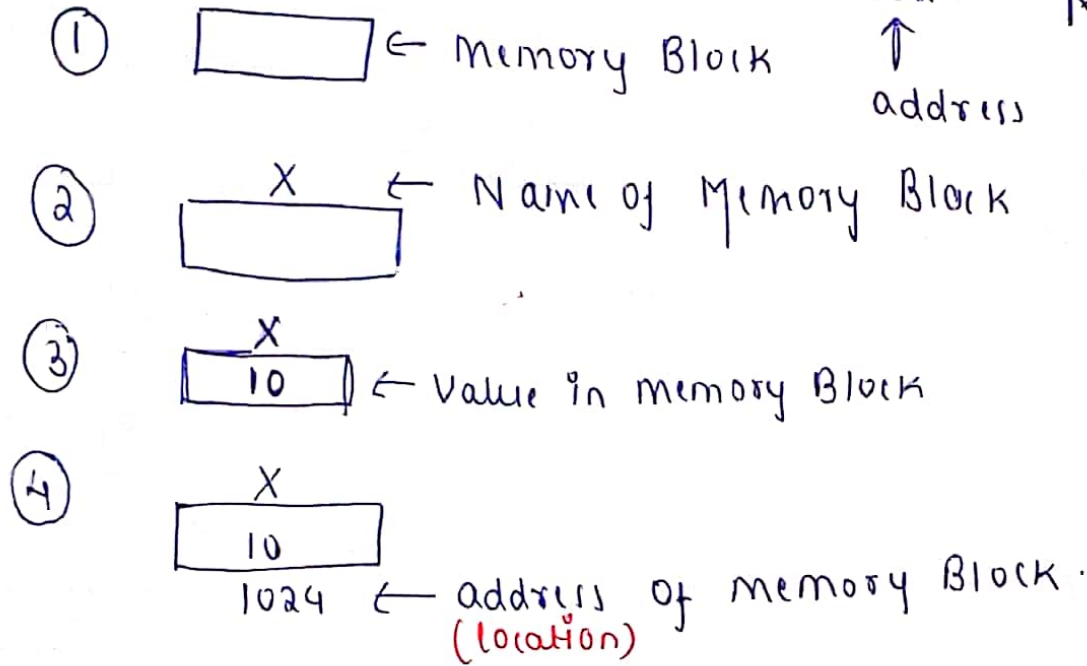 ① ← Memory Block ↑
address
② X ← Name of Memory Block
③ X
10 ← Value in memory Block
④ X
10
1024 ← address of memory Block.
(location)